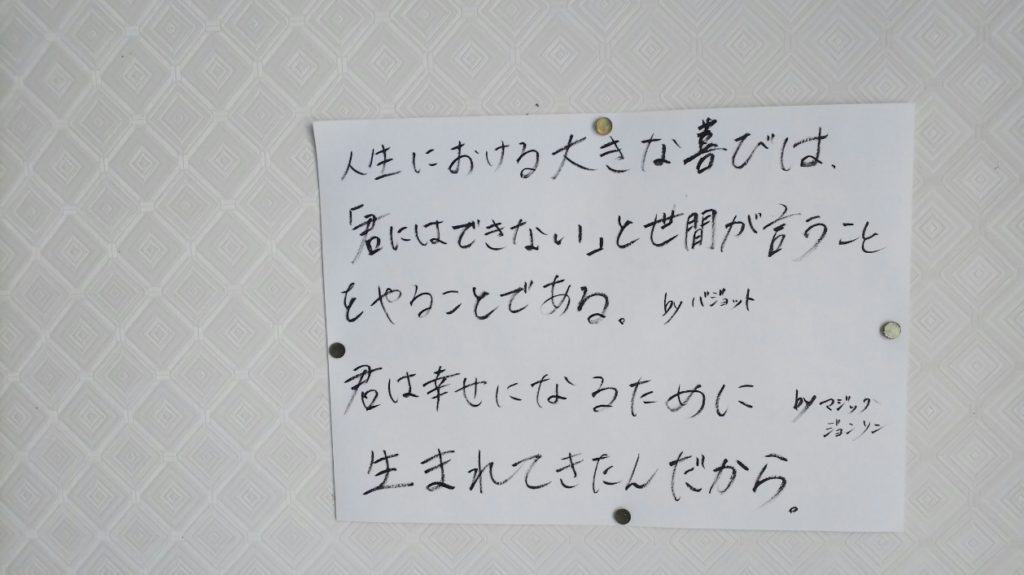 人生における大きな喜びは、
「君にはできない」と世間が言うこと
をやることである。 by バジョット
君は幸せになるために by マジック
ジョンソン
生まれてきたんだから。